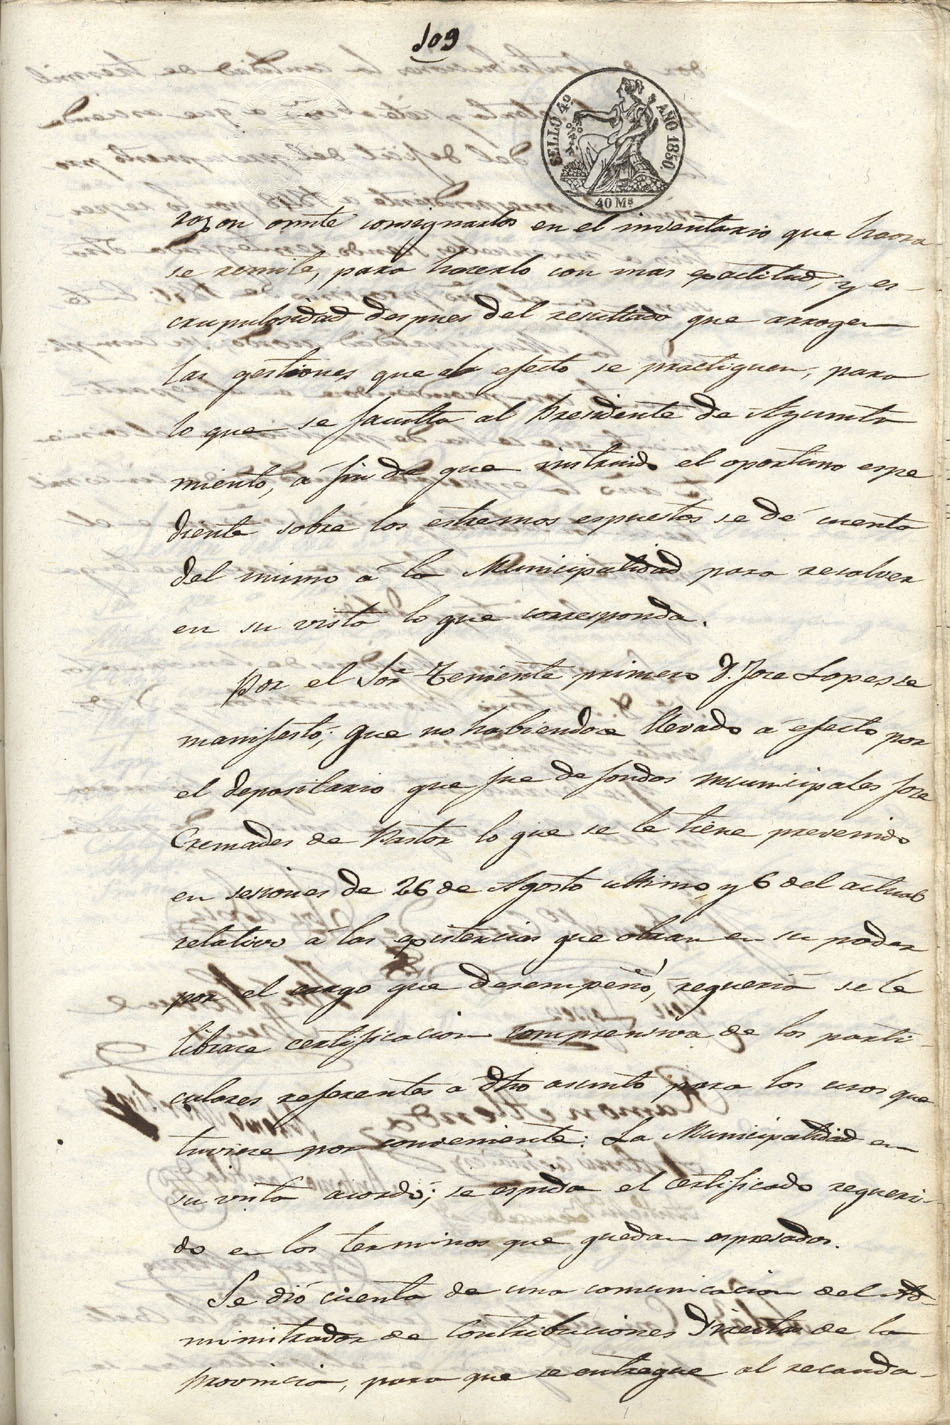 109
SELLO 4º AÑO 1850
40 Ms
razon omite consignarlos en el inventario que haora
se remite, para hacerlo con mas exactitud, y es-
crupulosidad despues del resultado que arrogen
las gestiones que al efecto se practiquen, para
lo que se faculta al Presidente de Ayunta
miento, a fin de que instruido el oportuno espe
diente sobre los estremos espuestos se dé cuenta
del mismo á la Municipalidad para resolver
en su vista lo que corresponda.
Por el Sor Teniente primero D. Jose Lopes se
manifestó; que no habiendose llevado a efecto por
el depositario que fue de fondos municipales Jose
Cremades de Pastor lo que se le tiene prevenido
en sesiones de 26 de Agosto ultimo, y 6 del actual
relativo á las existencias que obran en su poder
por el cargo que desempeñó, requeria se le
librace certificacion comprensiva de los parti-
culares referentes a dho asunto para los usos que
tuviere por conveniente: La Municipalidad en
su vista acordó; se espida el certificado requeri-
do en los terminos que quedan espresados.
Se dió cuenta de una comunicacion del Ad-
ministrador de Contribuciones Directas de la
provincia, para que se entregue al recauda-